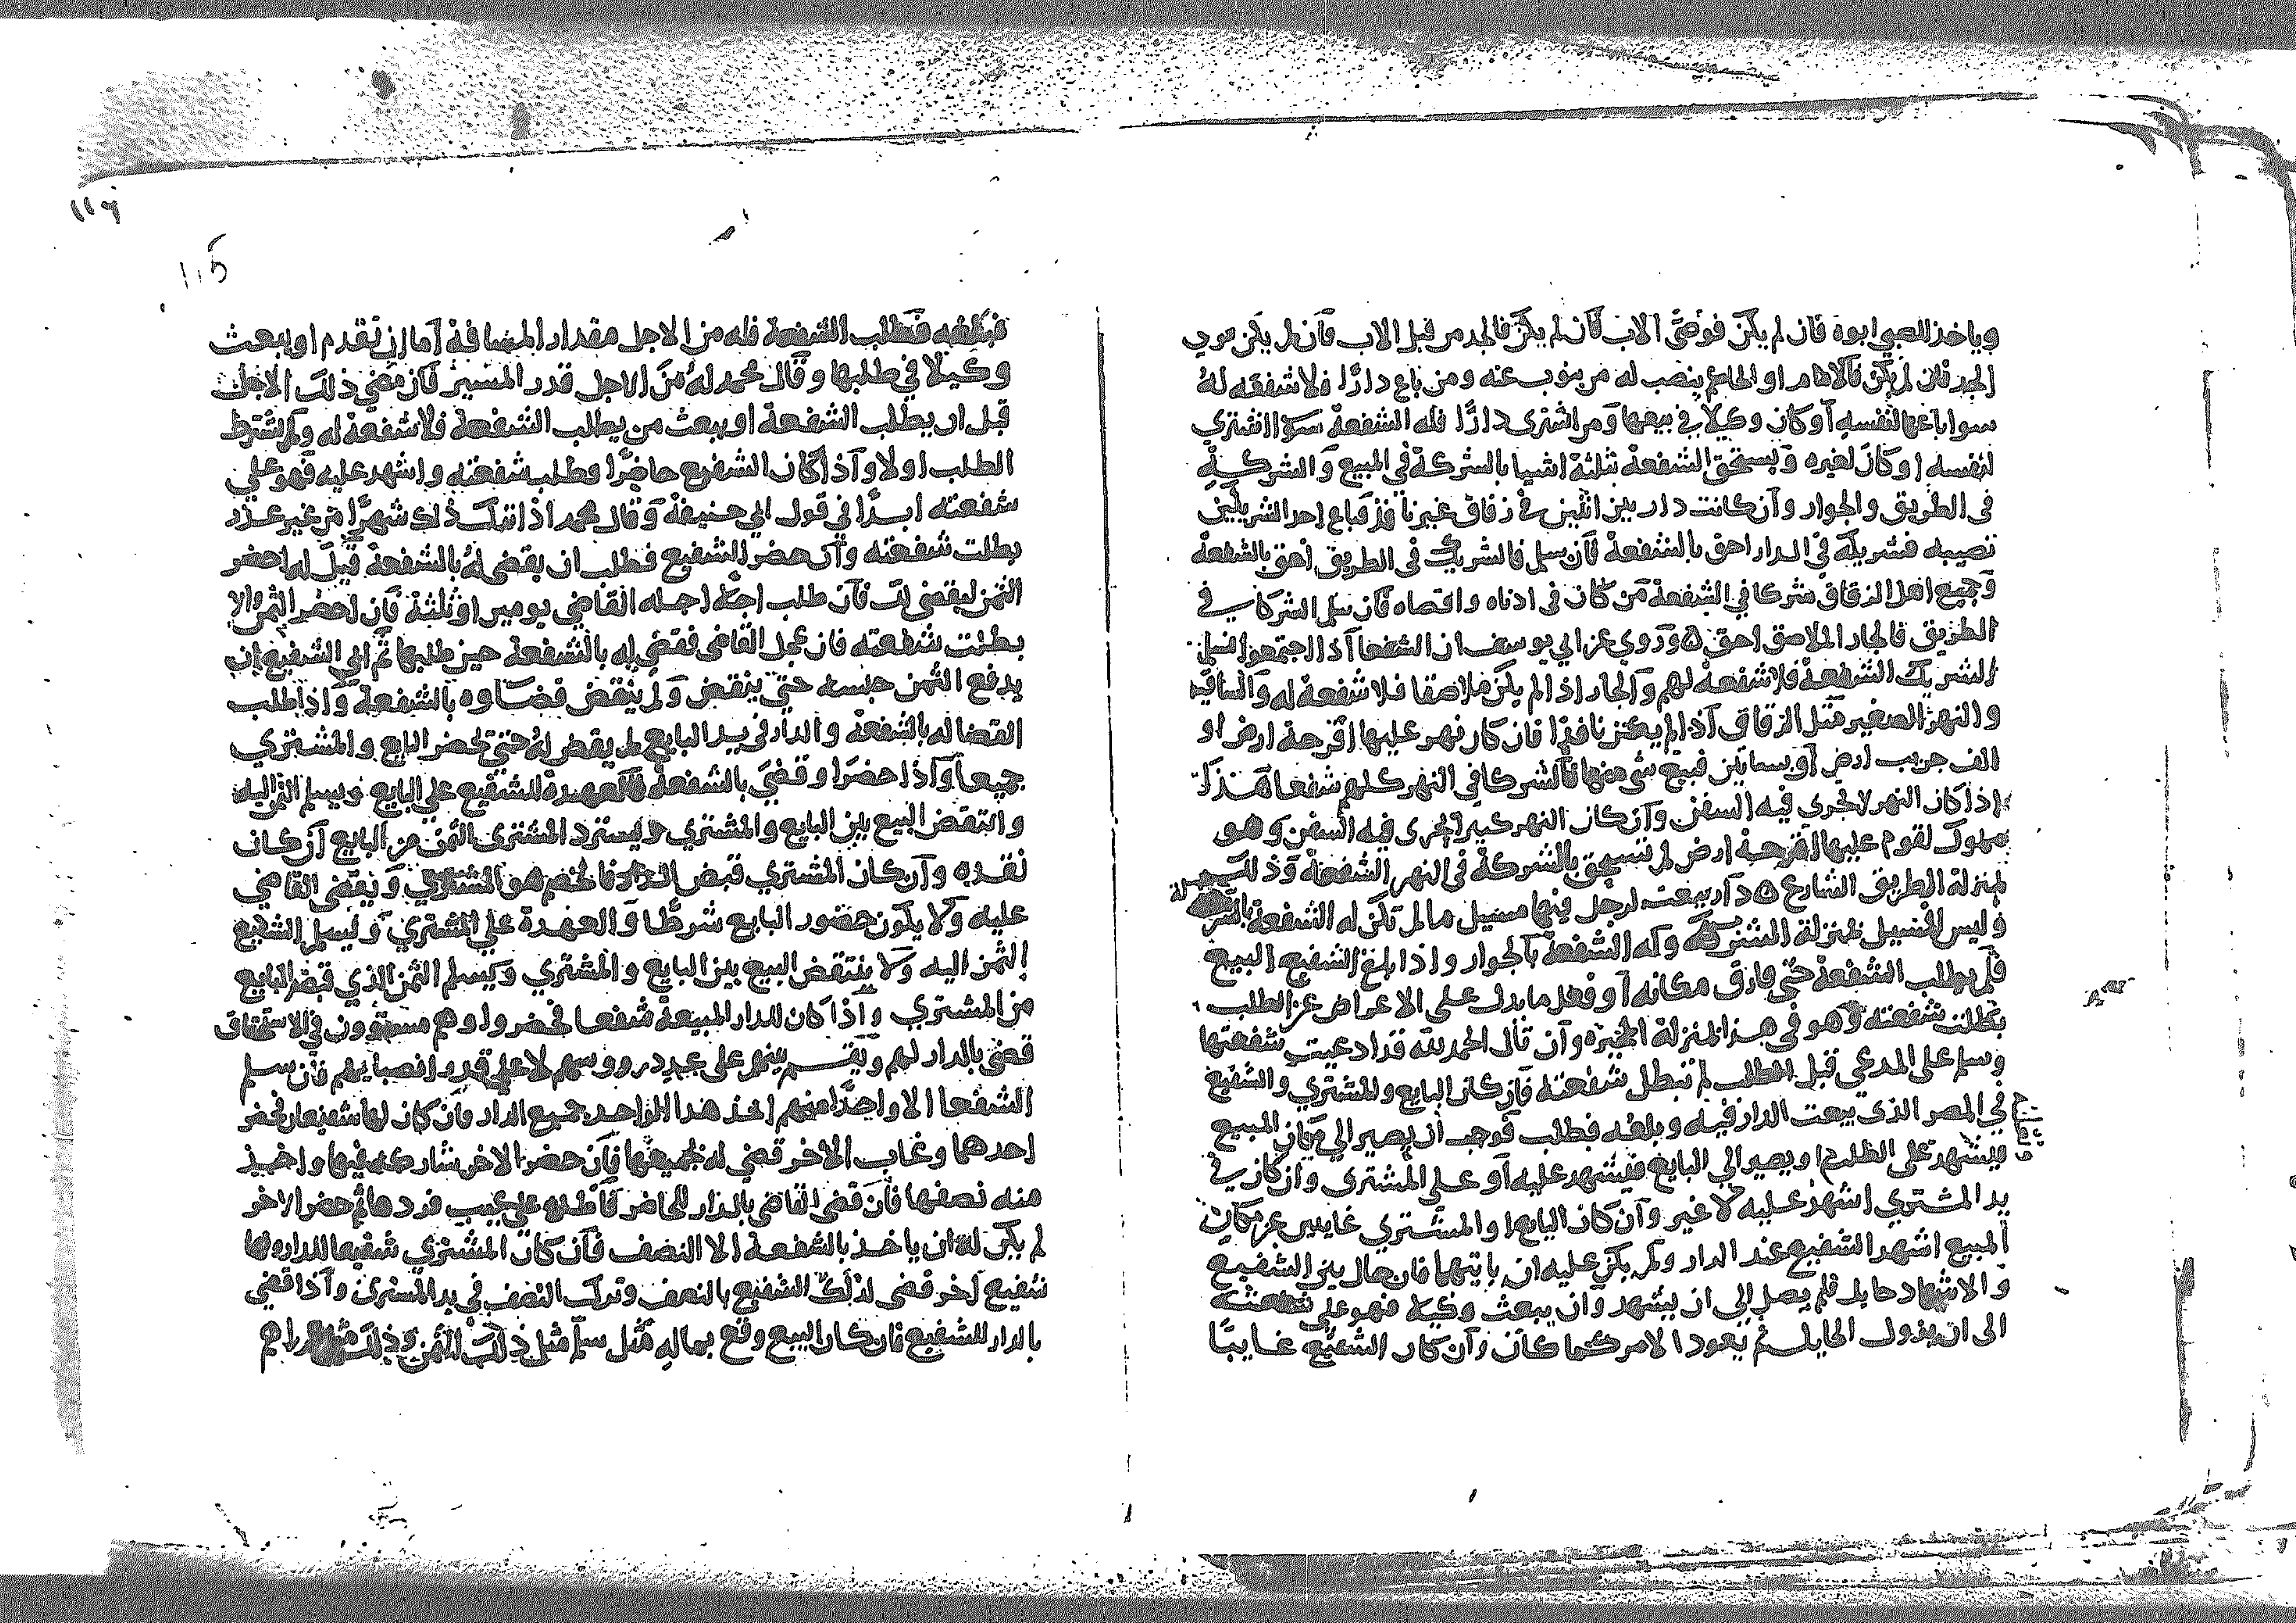 وياخذ للصبي ابوه فان لم يكن فوصي الاب فان لم يكن فالجد من قبل الاب فان لم يكن فوصي
الجد فان لم يكن فالامام او الحاكم ينصب له من ينوب عنه ومن باع دارا فلا شفعه له
سوا باعها لنفسه او كان وكيلا في بيعها ومن اشترى دارا فله الشفعة سوا اشتري
لنفسه او كان لغيره ويستحق الشفعة بثلثة اشيا بالشركة في المبيع والشركة
في الطريق والجوار وان كانت دار بين اثنين في زقاق غير نافذ فباع احد الشريكين
نصيبه فشريكه في الدار احق بالشفعة فان سلم فالشريك في الطريق احق بالشفعة
وجميع اهل الزقاق شركا في الشفعة من كان في ادناه واقصاه فان سلم الشركا في
الطريق فالجار الملاصق احق ٥ وروي عن ابي يوسف ان الشفعا اذا اجتمعوا فسلم
الشريك الشفعة فلا شفعة لهم والجار اذا لم يكن ملاصقا فلا شفعة له والساقيه
والنهر الصغير مثل الزقاق اذا لم يكن نافذا فان كان نهر عليها اقرحة ارض او
الف جريب ارض او بساتين فبيع شي منها فالشركا في النهر كلهم شفعا هذا
اذا كان النهر لا تجري فيه السفن وان كان النهر كبيرا تجري فيه السفن وهو
مملوك لقوم عليها اقرحة ارض لم تستحق بالشركة في النهر الشفعة وذلك
بمنزلة الطريق الشارع ٥ دار بيعت لرجل فيها مسيل ما لم تكن له الشفعة
وليس المسيل بمنزلة الشركة وله الشفعة بالجوار واذا بلغ الشفيع البيع
فلم يطلب الشفعة حتى فارق مكانه او فعل ما يدل على الاعراض عن الطلب
بطلت شفعته وهو في هذا بمنزلة المخيره وان قال الحمد لله قد ادعيت شفعتها
وسلم على المدعي قبل الطلب لم تبطل شفعته فان كان البايع والمشتري والشفيع
في المصر الذي بيعت الدار فيه وبلغه فطلب فوجب ان يصير الي مكان المبيع
فيشهد على الطلب او يصير الي البايع فيشهد عليه او على المشتري وان كان في
يد المشتري اشهد عليه لا غير وان كان البايع او المشتري غايبين عن مكان
المبيع اشهد الشفيع عند الدار ولم يكن عليه ان ياتيهما فان حال بين الشفيع
والاشهاد حايل فلم يصل الى ان يشهد وان يبعث وكيلا فهو على شفعته
الى ان يزول الحايل ثم يعود الامر كما كان وان كان الشفيع غايبا
١١٦
فبلغه فطلب الشفعة فله من الاجل مقدار المسافة اما ان تقدم او يبعث
وكيلا في طلبها وقال محمد له من الاجل قدر المسير فان مضي ذلك الاجل
قبل ان يطلب الشفعة او يبعث من يطلب الشفعة فلا شفعة له ولم يشترط
الطلب اولا واذا كان الشفيع حاضرا وطلب شفعته واشهد عليه فهو على
شفعته ابدا في قول ابي حنيفة وقال محمد اذا ترك ذلك شهرا من غير عذر
بطلت شفعته وان حضر الشفيع فطلب ان يقضى له بالشفعة قيل له احضر
الثمن ليقضى لك فان طلب اجلا اجله القاضي يومين او ثلثة فان احضر الثمن والا
بطلت شفعته فان عجل القاضي فقضى له بالشفعة حين طلبها ثم ابي الشفيع ان
يدفع الثمن حبسه حتى ينقض ولم ينقض قضاوه بالشفعة واذا طلب
القضا له بالشفعة والدار في يد البايع لم يقض له حتى يحضر البايع والمشتري
جميعا واذا حضرا وقضى بالشفعة فالعهدة للشفيع علي البايع ويسلم الثمن اليه
وانتقض البيع بين البايع والمشتري ويسترد المشتري الثمن من البايع ان كان
نقده وان كان المشتري قبض الدار فالخصم هو المشتري ويقضى القاضي
عليه ولا يكون حضور البايع شرطا والعهدة علي المشتري ويسلم الشفيع
الثمن اليه ولا ينتقض البيع بين البايع والمشتري ويسلم الثمن الذي قبض البايع
من المشتري واذا كان للدار المبيعة شفعا فحضروا وهم مستوون في الاستحقاق
قضى بالدار لهم ويقسم بينهم على عدد رووسهم لا على قدر انصبايهم فان سلم
الشفعا الا واحدا منهم اخذ هذا الواحد جميع الدار فان كان لها شفيعان فحضر
احدهما وغاب الاخر قضي له بجميعها فان حضر الاخر شاركه فيها واخذ
منه نصفها فان قضى القاضي بالدار للحاضر فاطلع على عيب فردها ثم حضر الاخر
لم يكن له ان ياخذ بالشفعة الا النصف فان كان المشتري شفيعا للدار ولها
شفيع اخر قضى لذلك الشفيع بالنصف وترك النصف في يد المشتري واذا قضي
بالدار للشفيع فان كان البيع وقع بماله مثل سلم مثل ذلك الثمن وذلك مثل الدراهم